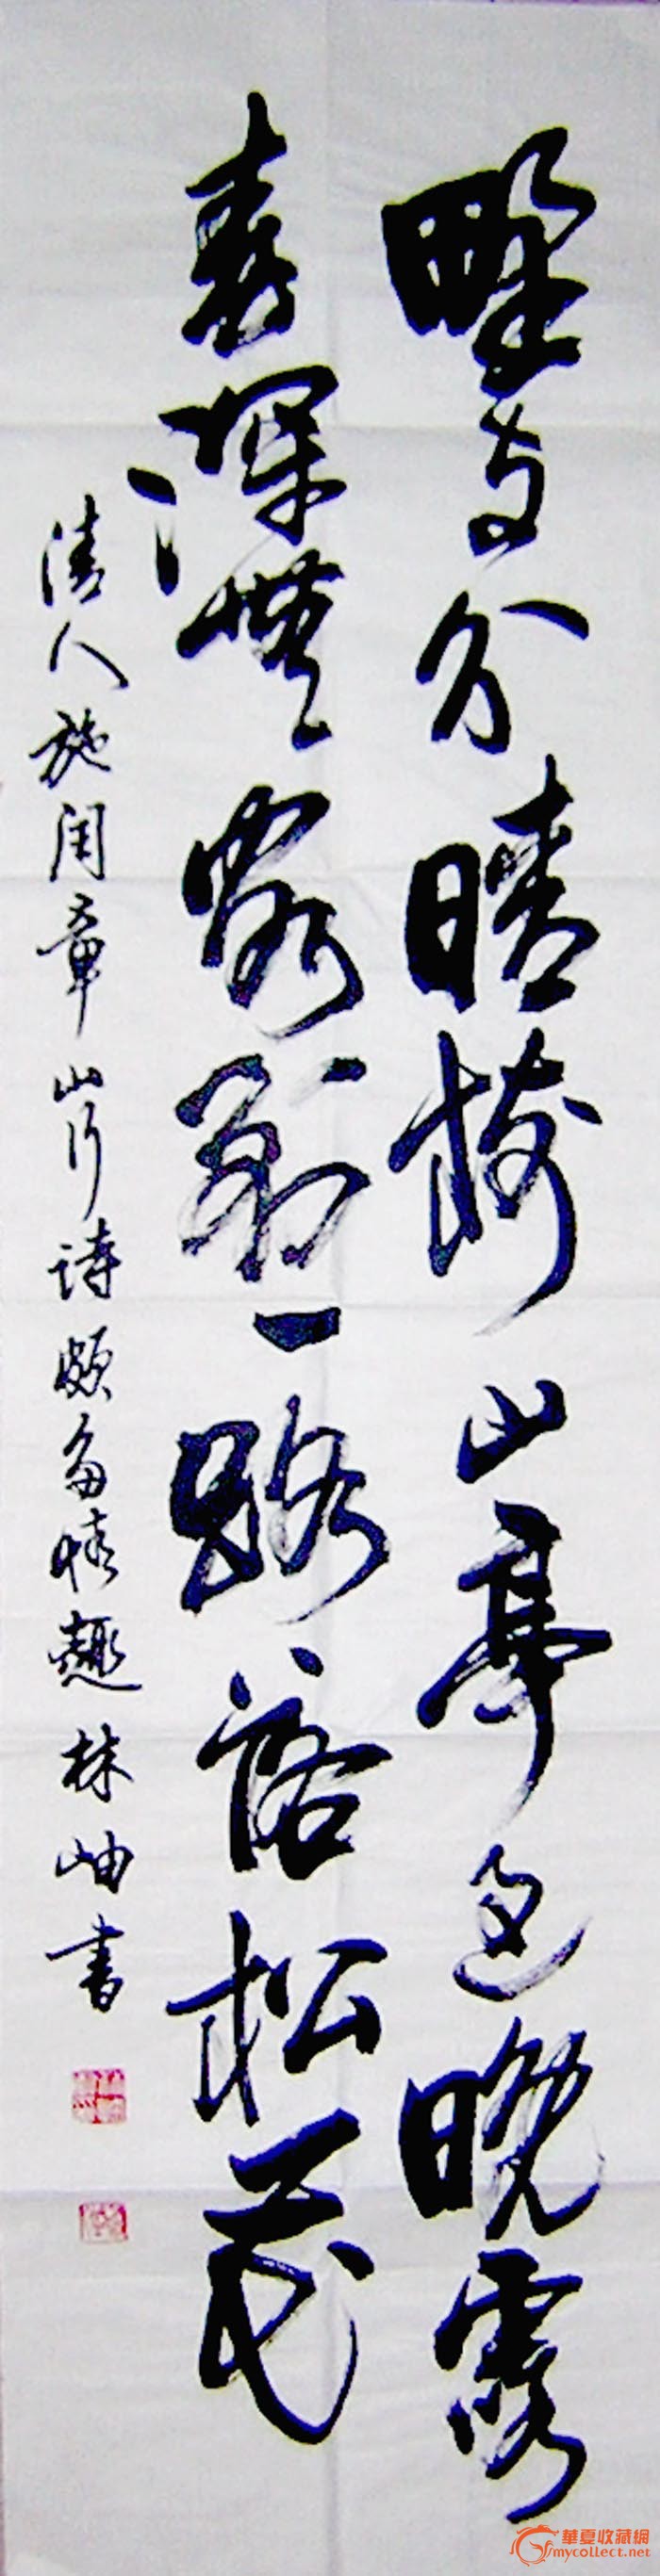 野寺分晴樹山亭过晚霞
春深無客到一路落松花
清人施闰章山行诗颇多情趣林岫书
華夏收藏網
mycollect.net